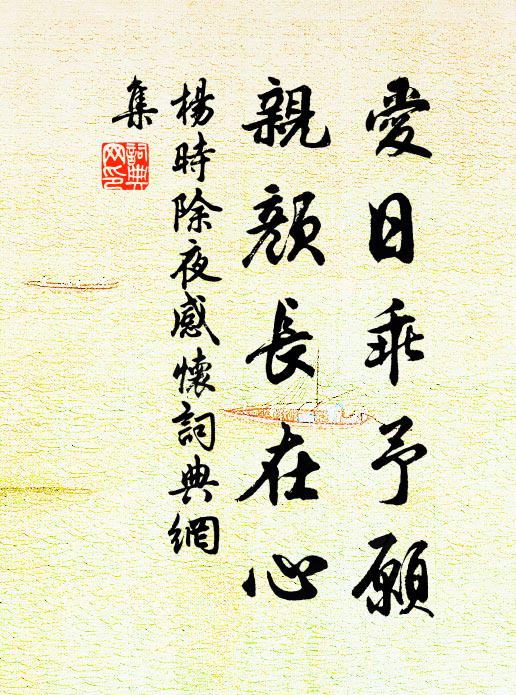 愛日乖予願
親顏長在心
楊時除夜感懷詞典網
集
詞典
网印